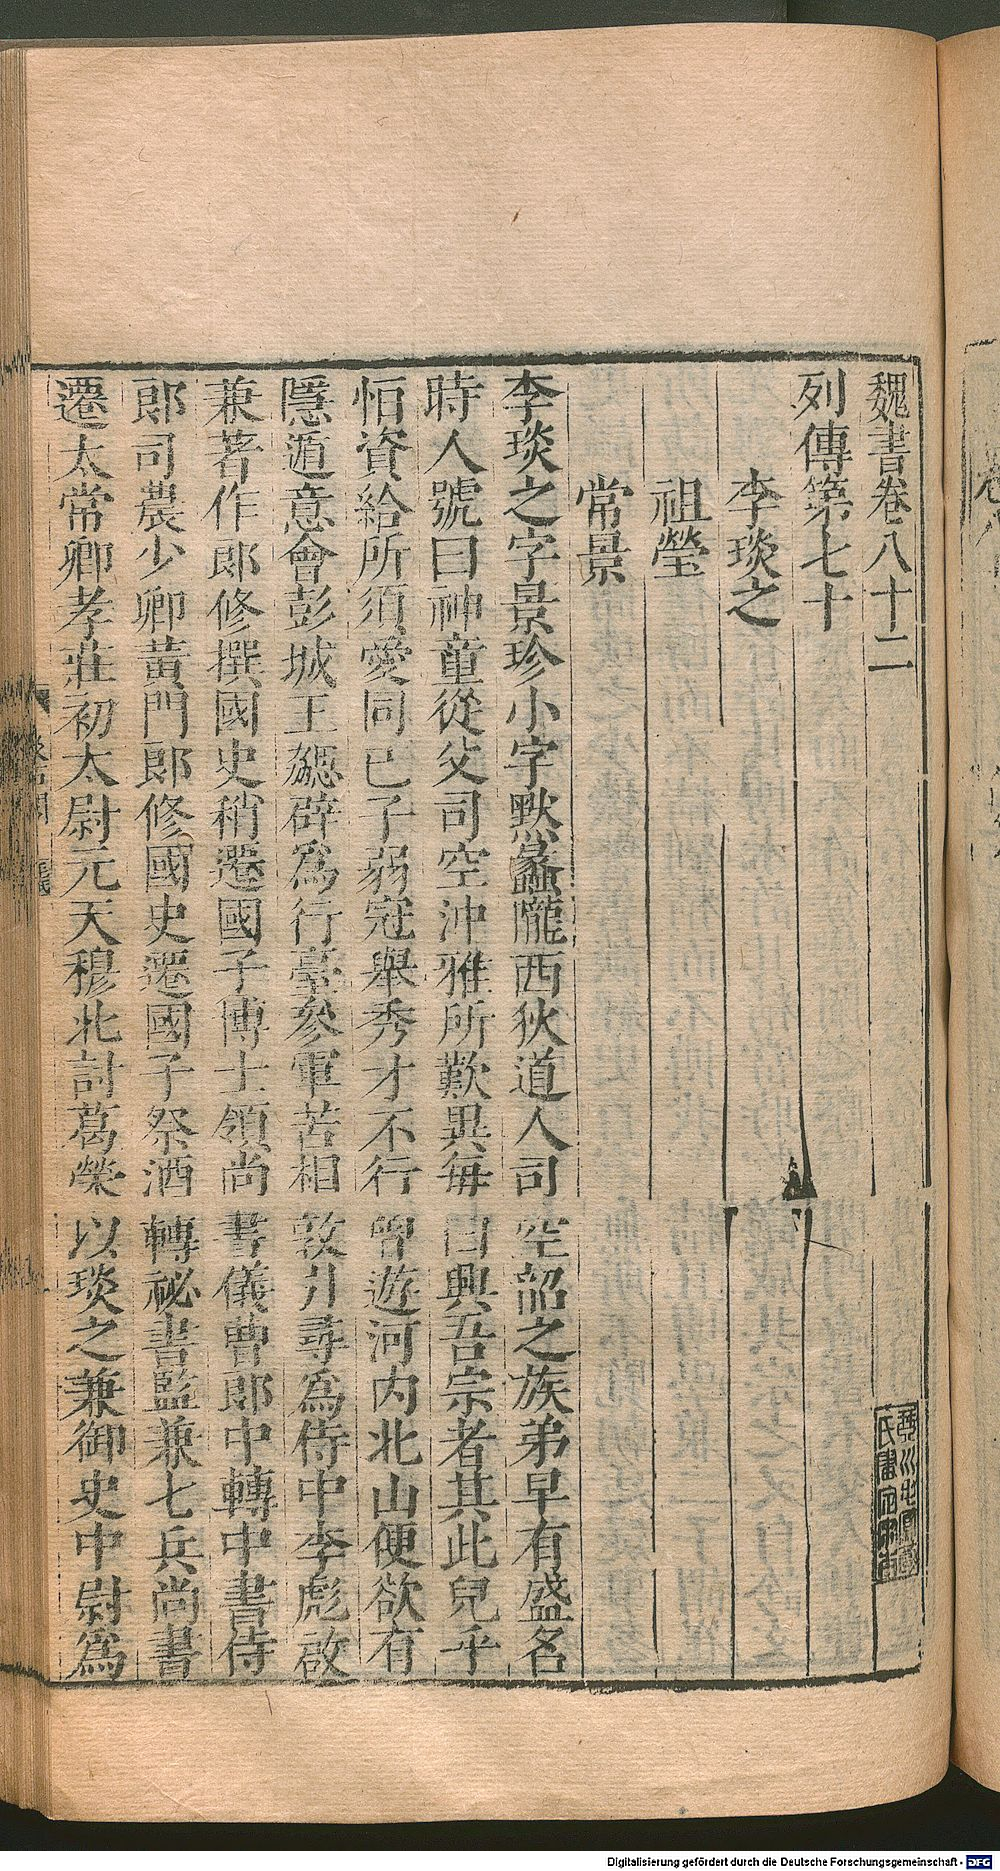 魏書卷八十二
列傳第七十
李琰之
祖瑩
常景
李琰之字景珍小字默蠡隴西狄道人司空韶之族弟早有盛名
時人號曰神童從父司空沖雅所歎異每曰興吾宗者其此兒乎
怕資給所須愛同已子弱冠舉秀才不行曾遊河内北山便欲有
隱遁意會彭城王勰辟爲行臺參軍苦相敦引尋爲侍中李彪啟
兼著作郎修撰國史稍遷國子博士領尚書儀曹郎中轉中書侍
郎司農少卿黃門郎修國史遷國子祭酒轉祕書監兼七兵尚書
遷太常卿孝莊初太尉元天穆北討葛榮以琰之兼御史中尉爲
Digitalisierung gefördert durch die Deutsche Forschungsgemeinschaft - DFG